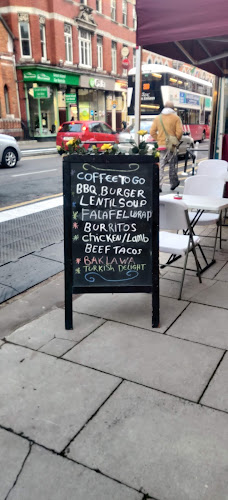 COFFEE TO GO
BBQ BURGER
LENTIL SOUP
* FALAFEL WRAP
* BURRITOS
* CHICKEN/LAMB
BEEF TACOS
* BAKLAWA
* TURKISH DELIGHT